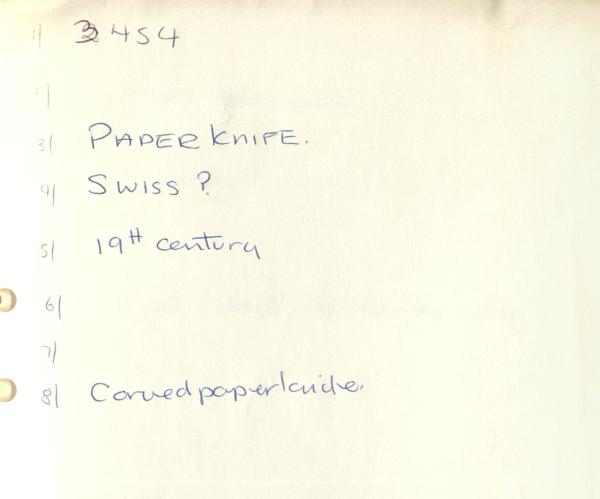 1/ 3454
2/
3/ PAPER KNIFE.
4/ SWISS ?
5/ 19th century
6/
7/
8/ Carved paperknife.